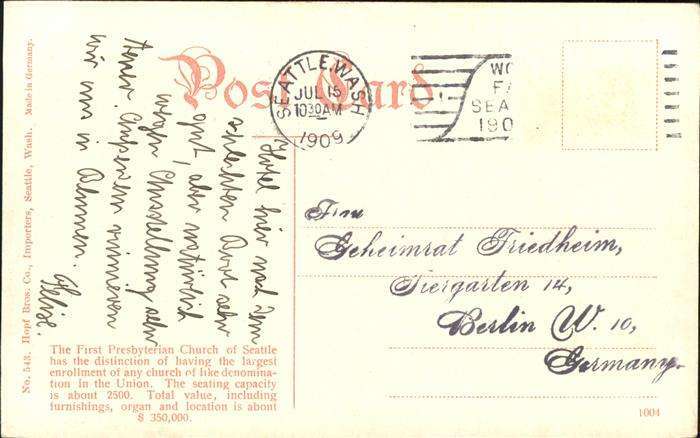 Post Card
SEATTLE, WASH.
JUL 15
10 30 AM
1909
WO
FA
SEA
190
Hotel hier nach dem
schlechten Boot sehr
gut, aber natürlich
wegen Ausstellung sehr
teuer. Ausserdem
wir nur in Bahnen.
Frau
Geheimrat Friedheim,
Tiergarten 14,
Berlin W. 10,
Germany.
The First Presbyterian Church of Seattle
has the distinction of having the largest
enrollment of any church of like denomina-
tion in the Union. The seating capacity
is about 2500. Total value, including
furnishings, organ and location is about
$ 350,000.
No. 543. Hopf Bros. Co., Importers, Seattle, Wash. Made in Germany.
1004